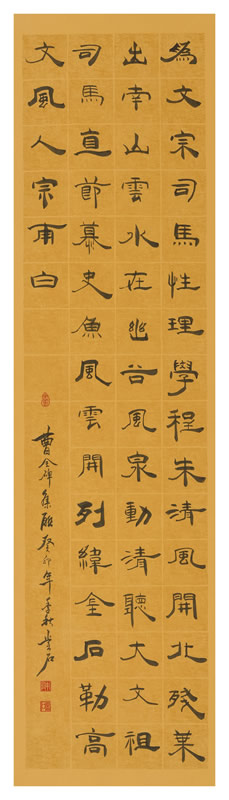 為文宗司馬性理學程朱清風開北殘業
出南山雲水在幽谷風泉動清聽大文祖
司馬直節慕史魚風雲開列緯金石勒高
文風人宗甫白
曹全碑集联癸卯年季秋